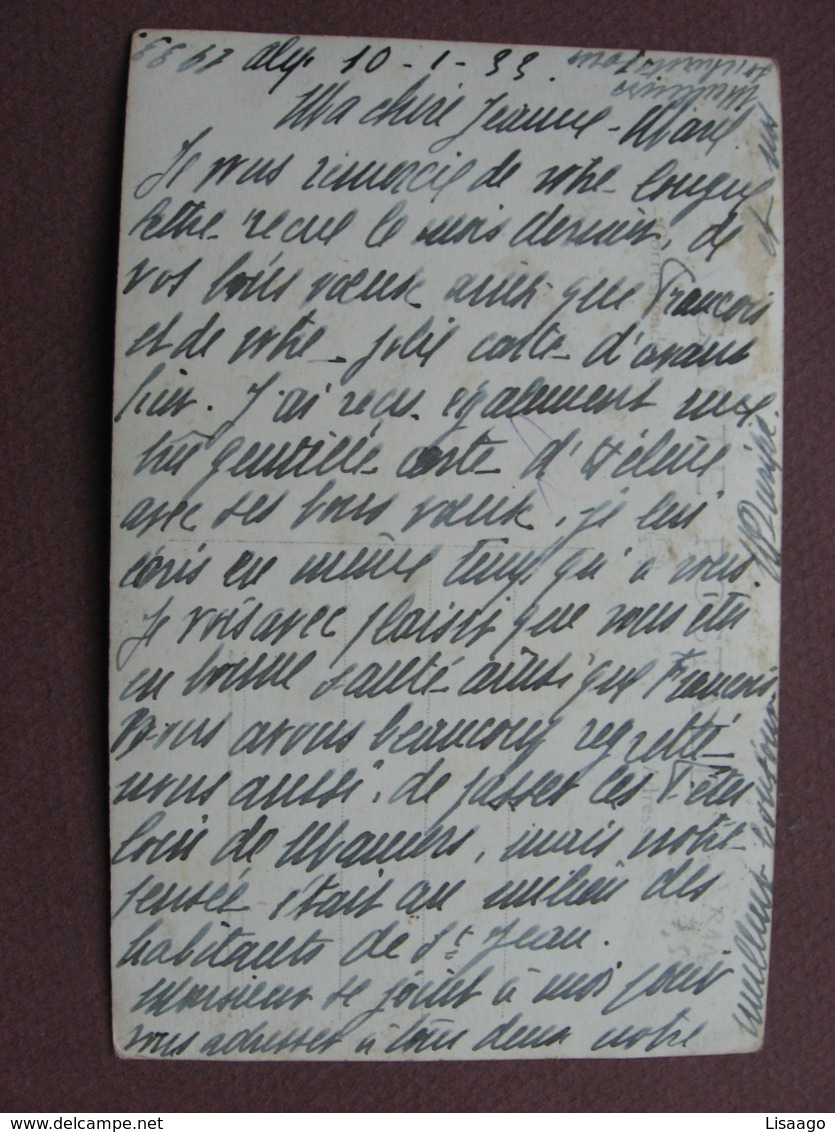 10 - 1 - 33.
Ma chère Jeanne-Marie
Je vous remercie de votre longue
lettre reçue le mois dernier, de
vos bons vœux ainsi que François
et de votre jolie carte d'avant
hier. J'ai reçu également une
très gentille carte d'Hélène
avec ses bons vœux, je lui
écris en même temps qu'à vous.
Je vois avec plaisir que vous êtes
en bonne santé ainsi que François.
Nous avons beaucoup regretté
nous aussi, de passer les Fêtes
loin de Mamers, mais notre
pensée était au milieu des
habitants de St Jean.
Monsieur se joint à moi pour
vous adresser à tous deux notre
meilleur
et nos
Adresse
Lisaago